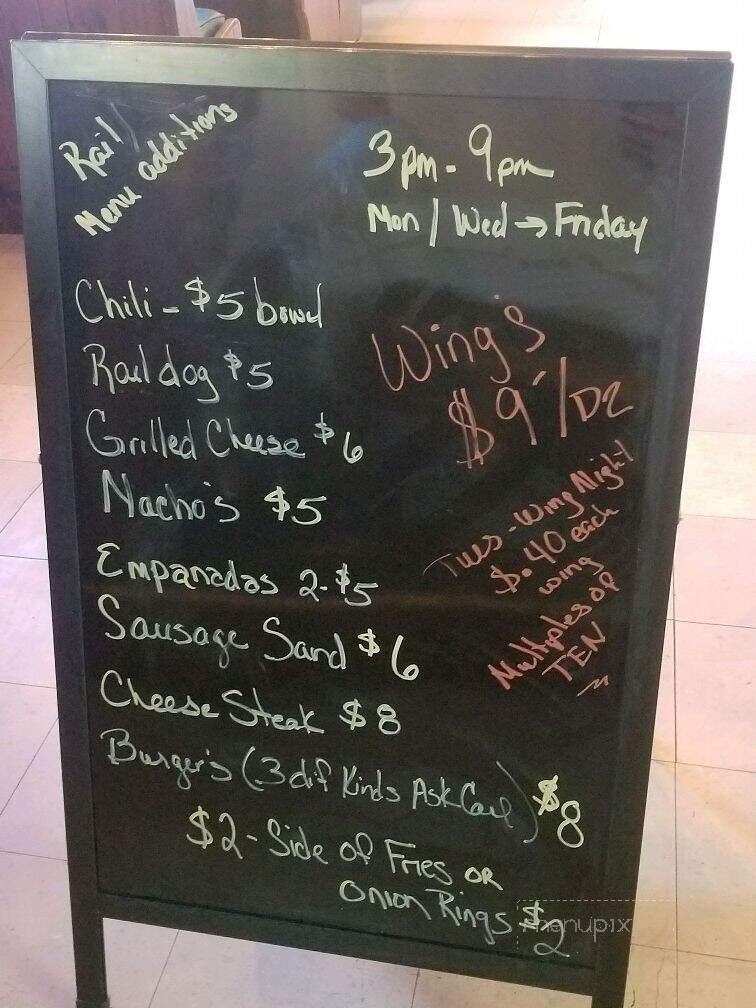 Rail
Menu additions
3pm - 9pm
Mon / Wed → Friday
Chili - $5 bowl
Rail dog $5
Grilled Cheese $6
Nacho's $5
Empanadas 2-$5
Sausage Sand $6
Cheese Steak $8
Burger's (3 dif Kinds Ask Carl) $8
$2 - Side of Fries OR
Onion Rings $2
Wing's
$9/DZ
Tues - Wing Night
$.40 each
wing
Multiples of
TEN
menupix